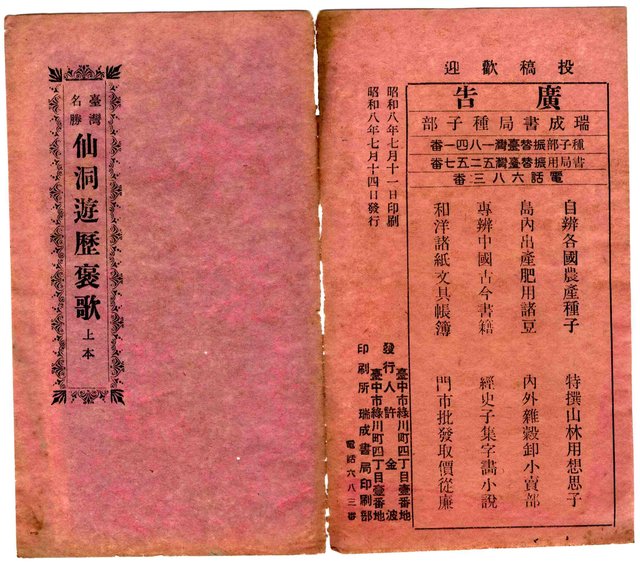 投稿歡迎
廣告
瑞成書局種子部
種子部振替臺灣一八四一番
書局用振替臺灣五二五七番
電話六八三番
自辨各國農產種子　特撰山林用想思子
島內出產肥用諸豆　內外雜穀卸小賣部
專辨中國古今書籍　經史子集字畵小說
和洋諸紙文具帳簿　門市批發取價從廉
昭和八年七月十一日印刷
昭和八年七月十四日發行
臺中市綠川町四丁目壹番地
發行人　許金波
臺中市綠川町四丁目壹番地
印刷所　瑞成書局印刷部
電話六八三番
臺灣名勝
仙洞遊歷褒歌　上本